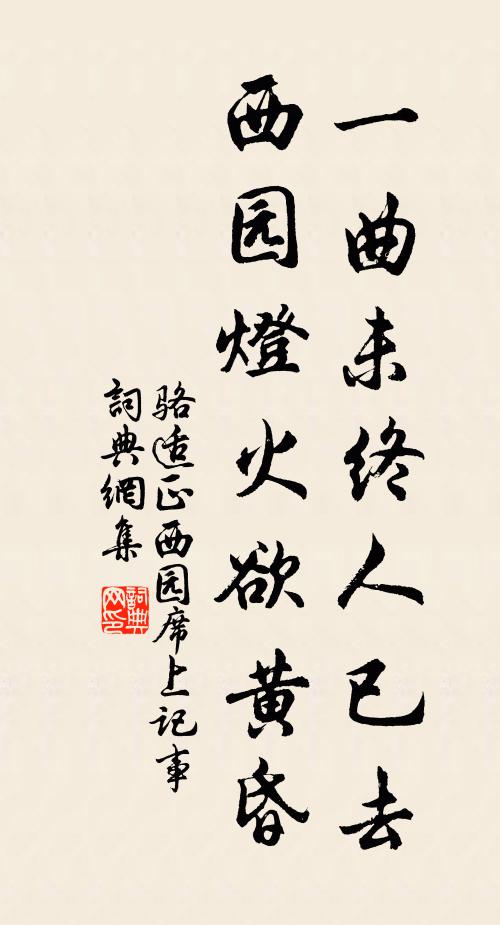 一曲未终人已去
西园燈火欲黄昏
骆适正西园席上记事
詞典網集
詞典网印